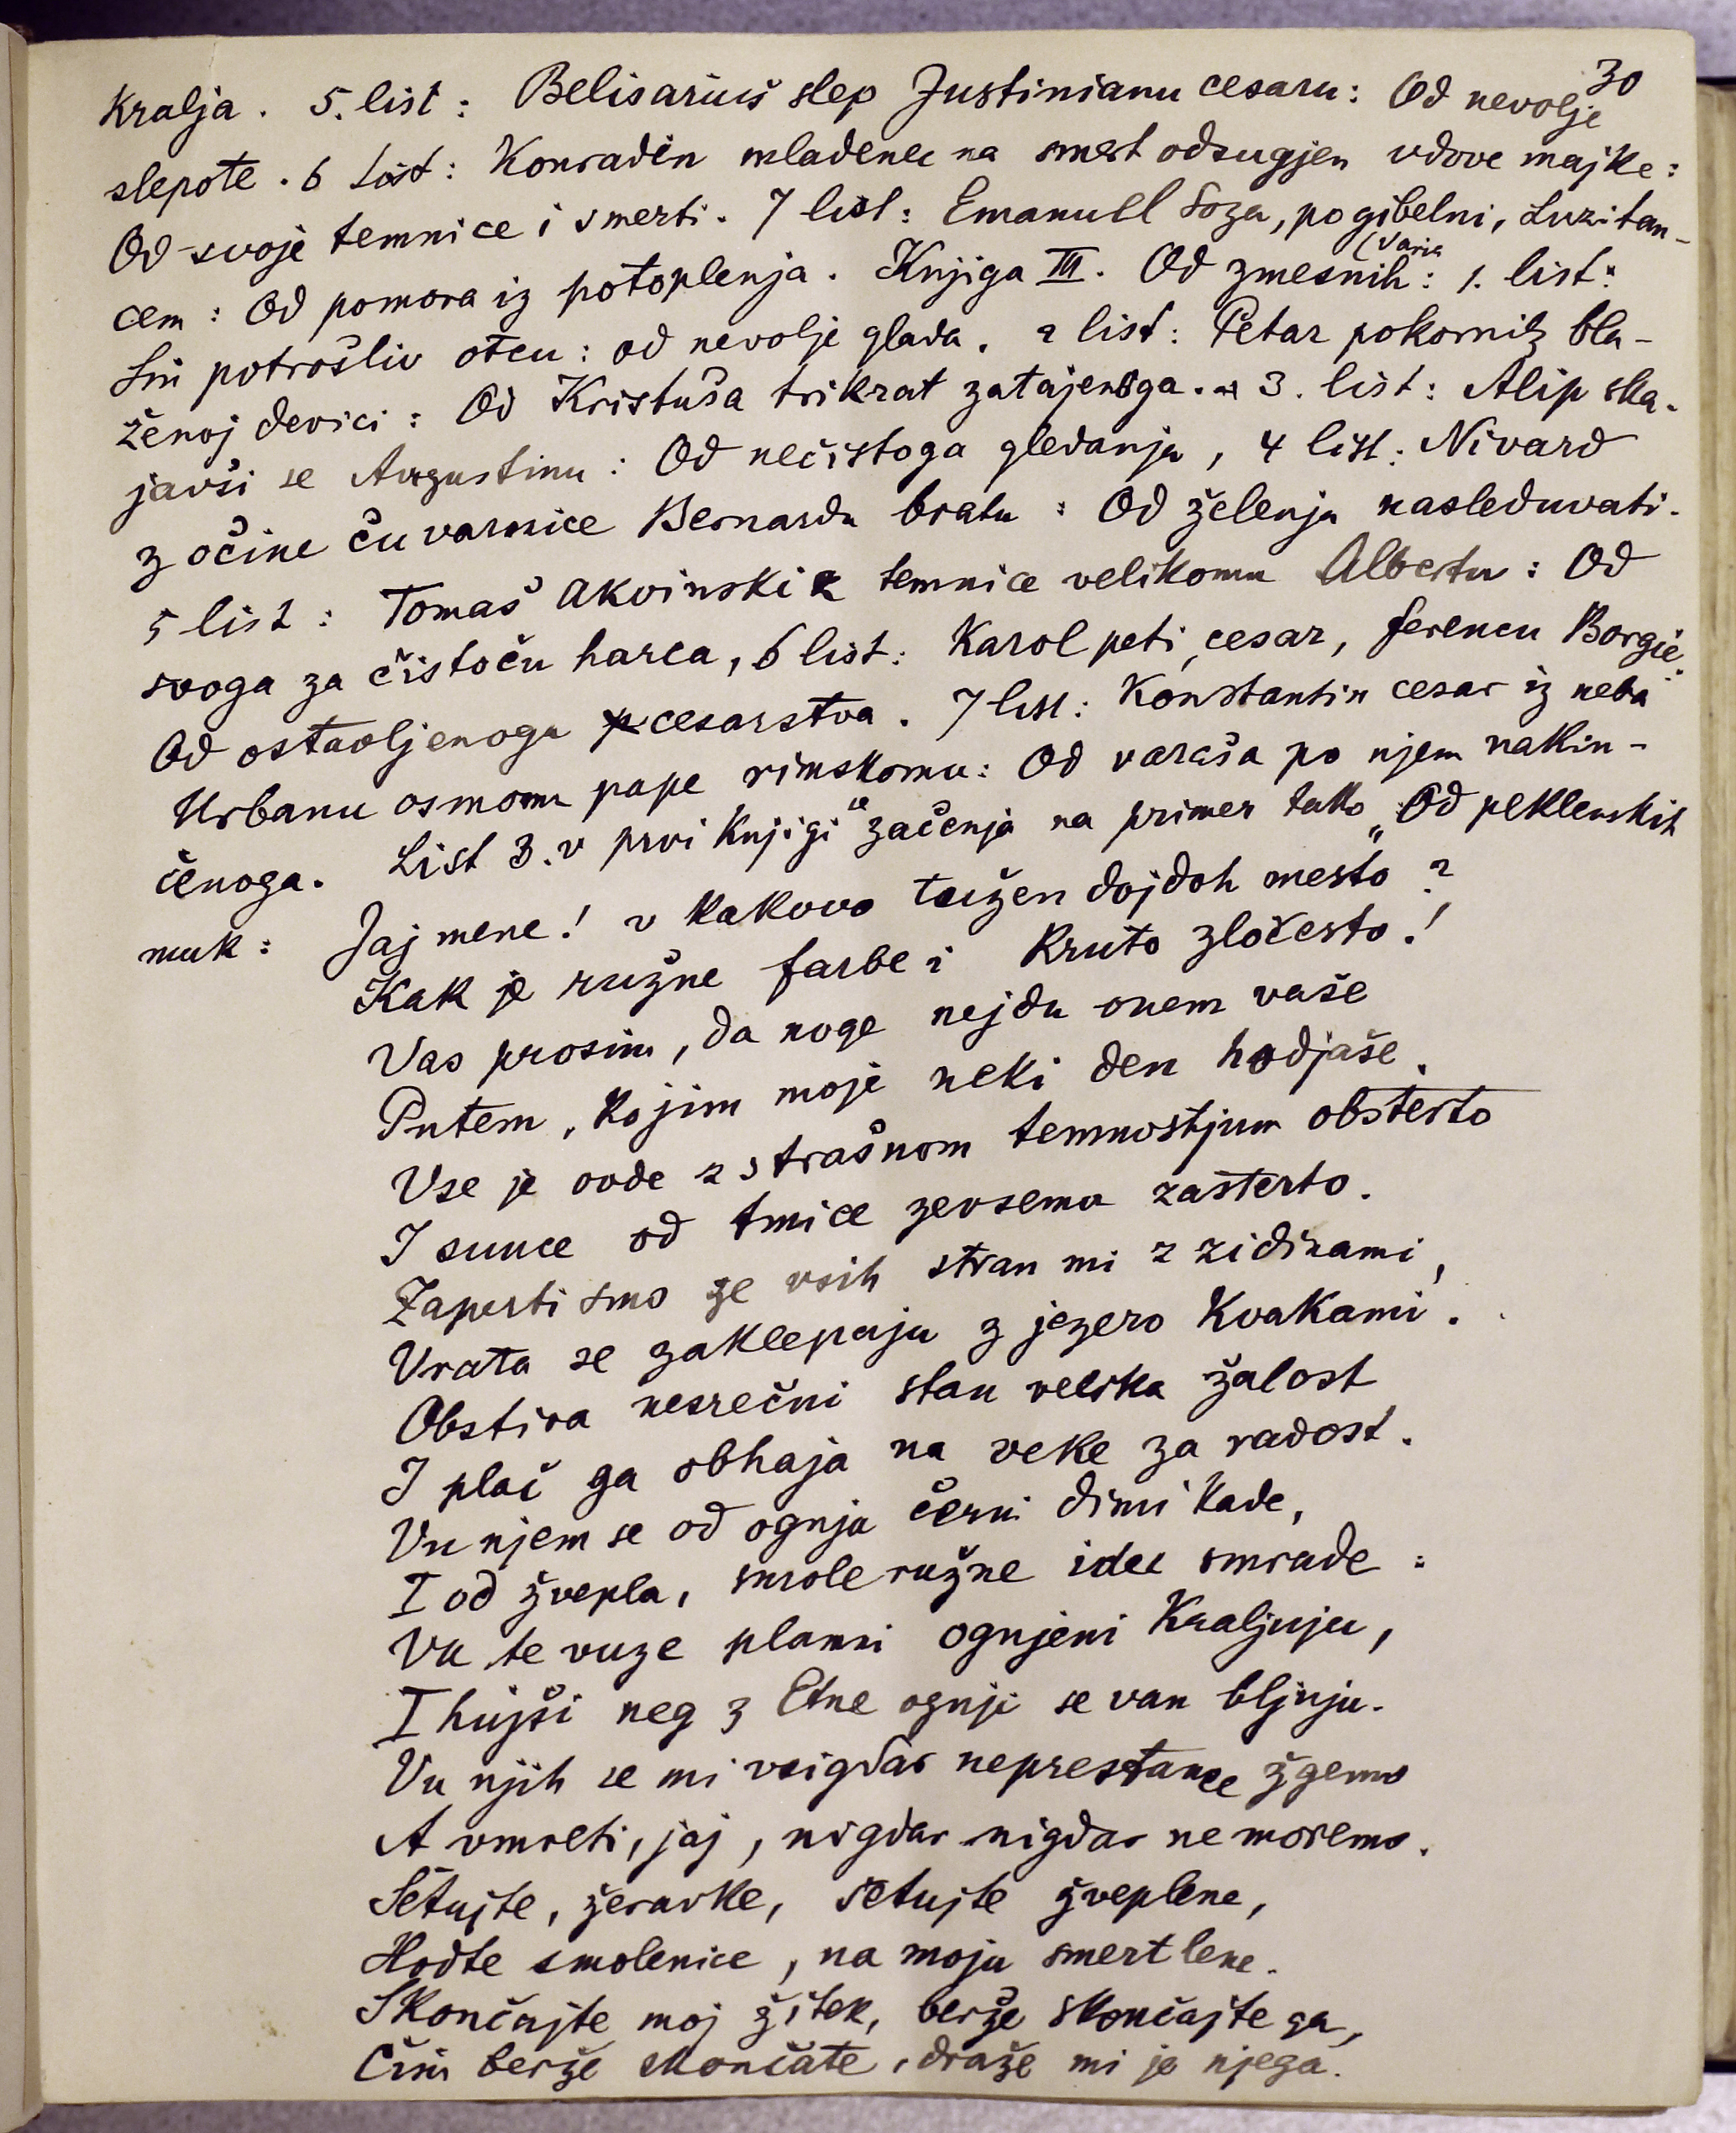 30
Kralja. 5. list: Belisariuš slep Justinianu cesaru: Od nevolje
slepote. 6 list: Konradin mladenec na smert odsugjen vdove majke:
Od svoje temnice i smerti. 7 list: Emanuel Soza, pogibelni, Luzitan-
cem: Od pomora iz potoplenja. Knjiga III. Od zmesnih (Varia: 1. list:
Sin potrošliv otcu: od nevolje glada. 2 list: Petar pokornik bla-
ženoj devici: Od Kristuša trikrat zatajenoga. 3. list: Alip ska-
javši se Augustinu: Od nečistoga gledanja, 4 list: Nivard
z očine čuvarnice Bernardu bratu: Od želenja nasleduvati.
5 list: Tomaš Akvinski z temnice velikomu Albertu: Od
svoga za čistoču harca, 6 list: Karol peti, cesar, ferencu Borgie:
Od ostavljenoga cesarstva. 7 list: Konstantin cesar iz neba
Urbanu osmomu pape rimskomu: Od varaša po njem nakin-
čenoga. List 3. v prvi knjigi se začenja na primer tako „Od peklenskih
muk: Jaj mene! v kakovo tužen dojdoh mesto?
Kak je ružne farbe i kruto zločesto!
Vas prosim, da noge nejdu onem vaše
Putem, kojim moje neki den hodjaše.
Vse je ovde z strašnom temnostjum obsterto
I sunce od tmice zevsema zasterto.
Zaperti smo ze vsih stran mi z zidinami,
Vrata se zaklepaju z jezero kvakami.
Obstira nesrečni stan velika žalost
I plač ga obhaja na veke za radost.
Vu njem se od ognja černi dimi kade,
I od žvepla, smole ružne idee smrade:
Vu te vuze plamni ognjeni kraljuju,
I hujši neg z Etne ognji se van bljuju.
Vu njih se mi vsigdar neprestance žgemo
A vmreti, jaj, nigdar nigdar ne moremo.
Šetujte, žeravke, šetujte žveplene,
Hodte smolenice, na moju smert lene.
Skončajte moj žitek, berže skončajte ga,
Čim berže skončate, draže mi je njega.